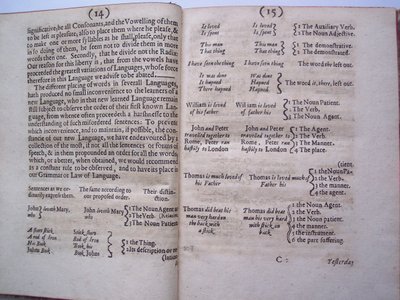 (14)
significative, be all Consonants, and the Vowelling of them
to be left as pleasure, also to place them where he please, &
to make one or more syllables as he shall please, only that
in so doing of them, he seem not to divide them in more
words then one. Secondly, that he divide not the Radix
Our reason for this liberty is, that from the vowels have
proceeded the greatest variations of Languages, whose force
therefore in this Language we advise to be abated.
The different placing of words in severall Languages,
hath produced no small inconvenience to the learners of a
new Language, who in that new learned Language remain
still subject to observe the order of their first known Lan-
guage, from whence often proceedeth a harshnesse to the
understanding of such misordered sentences. To prevent
which inconvenience, and to maintain, if possible, the con-
stancie of our new Language, we have endeavoured by a
collection of the most, if not all the sentences or forms of
speech, & in them propounded an order for all the words
which, or a better, when obtained, we would recommend
as a constant rule to be observed, and to have its place in
our Grammar or Law of Language.
Sentences as we or-
dinarily express
them.
The same according to
our proposed order.
Their distin-
ction.
John seeth Mary,
who
John seeth Mary
who
1 The Noun Agent
2 The Verb.
3 The Noun
A stone stick,
An end of Iron
His Book,
Johns Book,
Stick
End of Iron
Book his
Book John
1 the Thing.
2 its description or
(15)
Is loved
Is spent
Is loved
Is spent
1 The Auxiliary Verb.
2 The Noun Adjective.
This man
That thing
This man
That thing
1 The demonstrative.
2 The demonstrated.
I have seen the thing
I have seen thing
The word the left out.
It was done
It hapned
There hapned
Was done
Is Hapned.
Hapned.
The word it, there, left out.
William is loved
of his father
William is loved
of father his
1 The Noun Patient.
2 the Verb.
3 the Noun Agent.
John and Peter
travelled together to
Rome, Peter ran
hastily to London
John and Peter
travelled together to
Rome, Peter ran
hastily to London
1 the Agent.
2 the Verb.
3 the Manner.
4 the place
Thomas is much loved of
his Father
Thomas is loved much of
Father his
1 the Noun Pa-
(tient.
2 the Verb.
3 the manner.
4 the agent.
Thomas did beat his
man very harden
the back with
a stick.
Thomas did beat
man his very hard
with stick on
back
1 the Noun Agent.
2 the Verb.
3 the Noun patient.
4 the manner.
5 the instrument.
6 the part suffering.
C
Yesterday